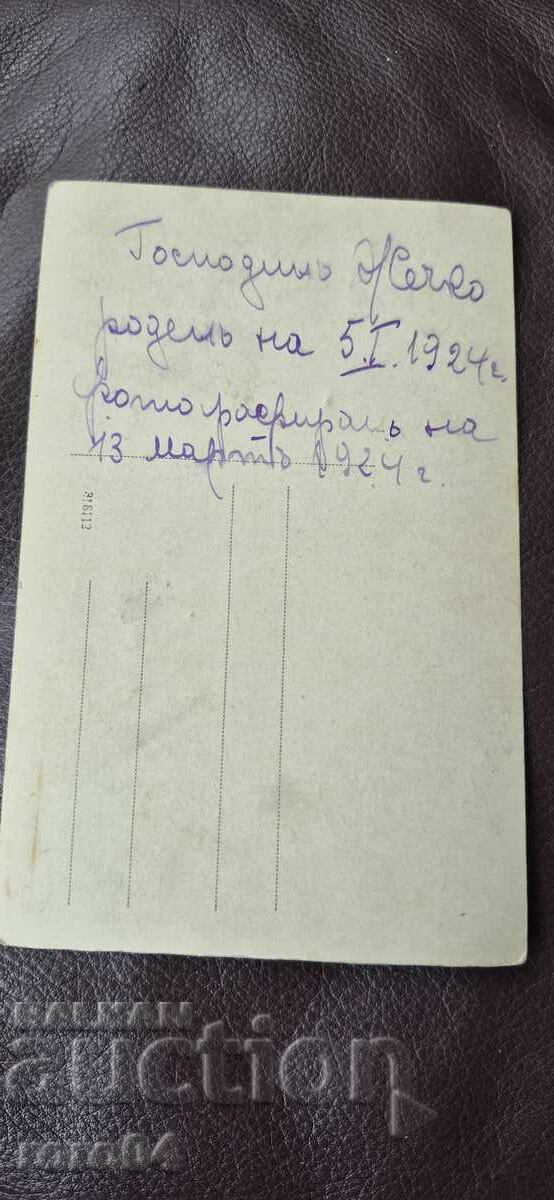 Господинъ Жечко
роденъ на 5.I.1924 г.
фотографиранъ на
13 мартъ 1924 г.
318112
BALKAN
auction
roro04